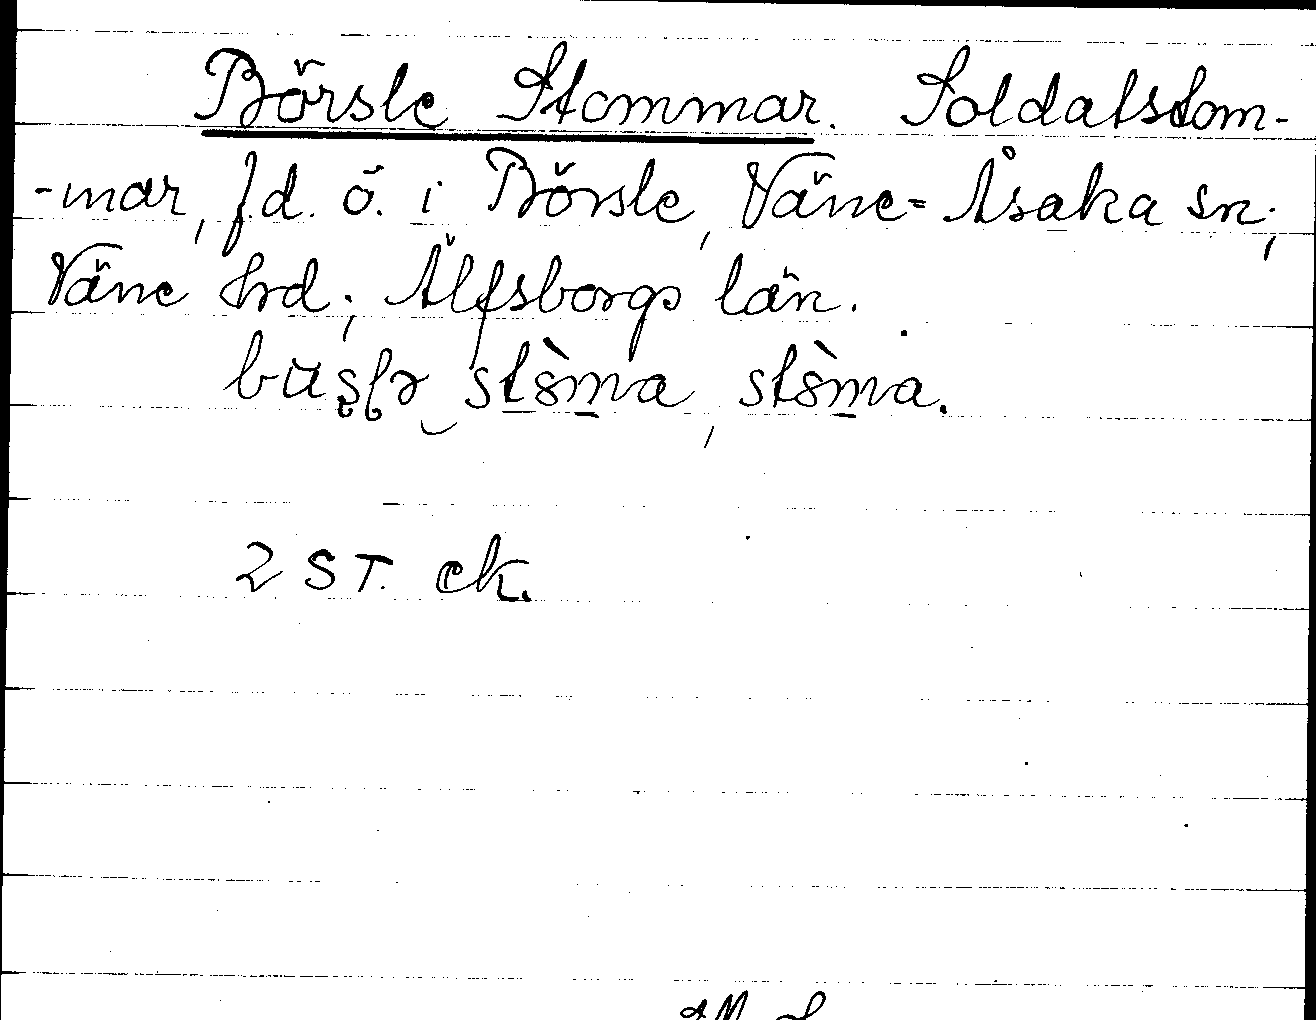 Börsle Stommar. Soldatstom-
-mar, f.d. ö. i Börsle, Väne-Åsaka sn;
Väne hrd; Älfsborgs län.
2 ST. ek.